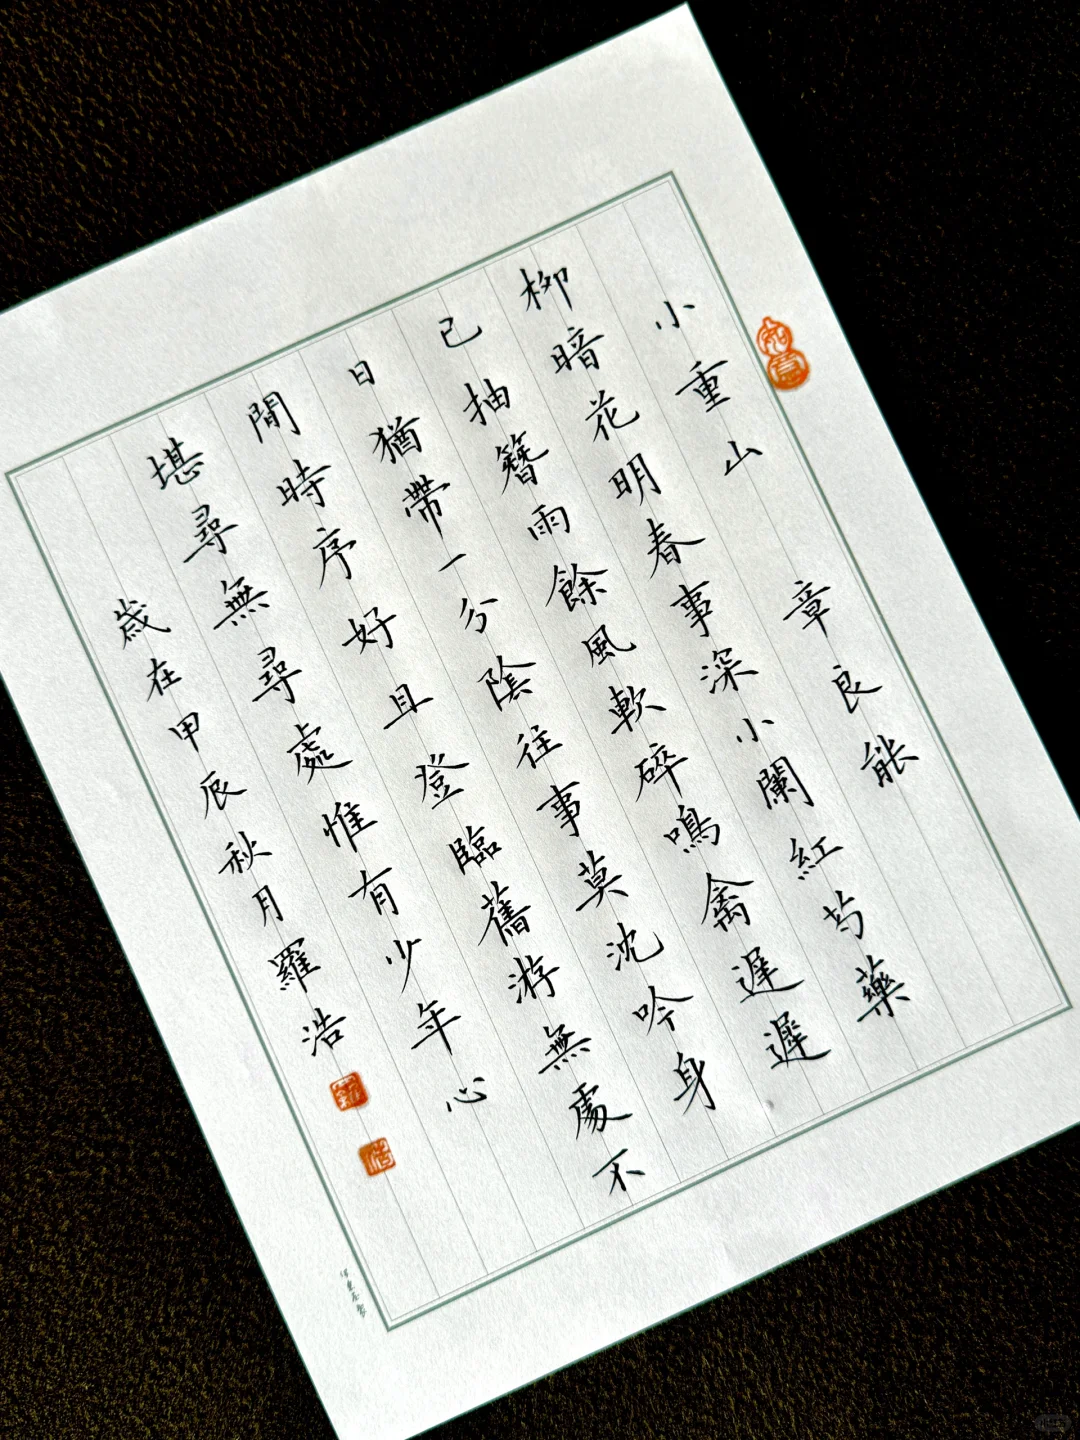 小重山 章良能
柳暗花明春事深小闌紅芍藥
已抽簪雨餘風軟碎鳴禽遲遲
日猶帶一分陰往事莫沈吟身
閒時序好且登臨舊游無處不
堪尋無尋處惟有少年心
歲在甲辰秋月羅浩